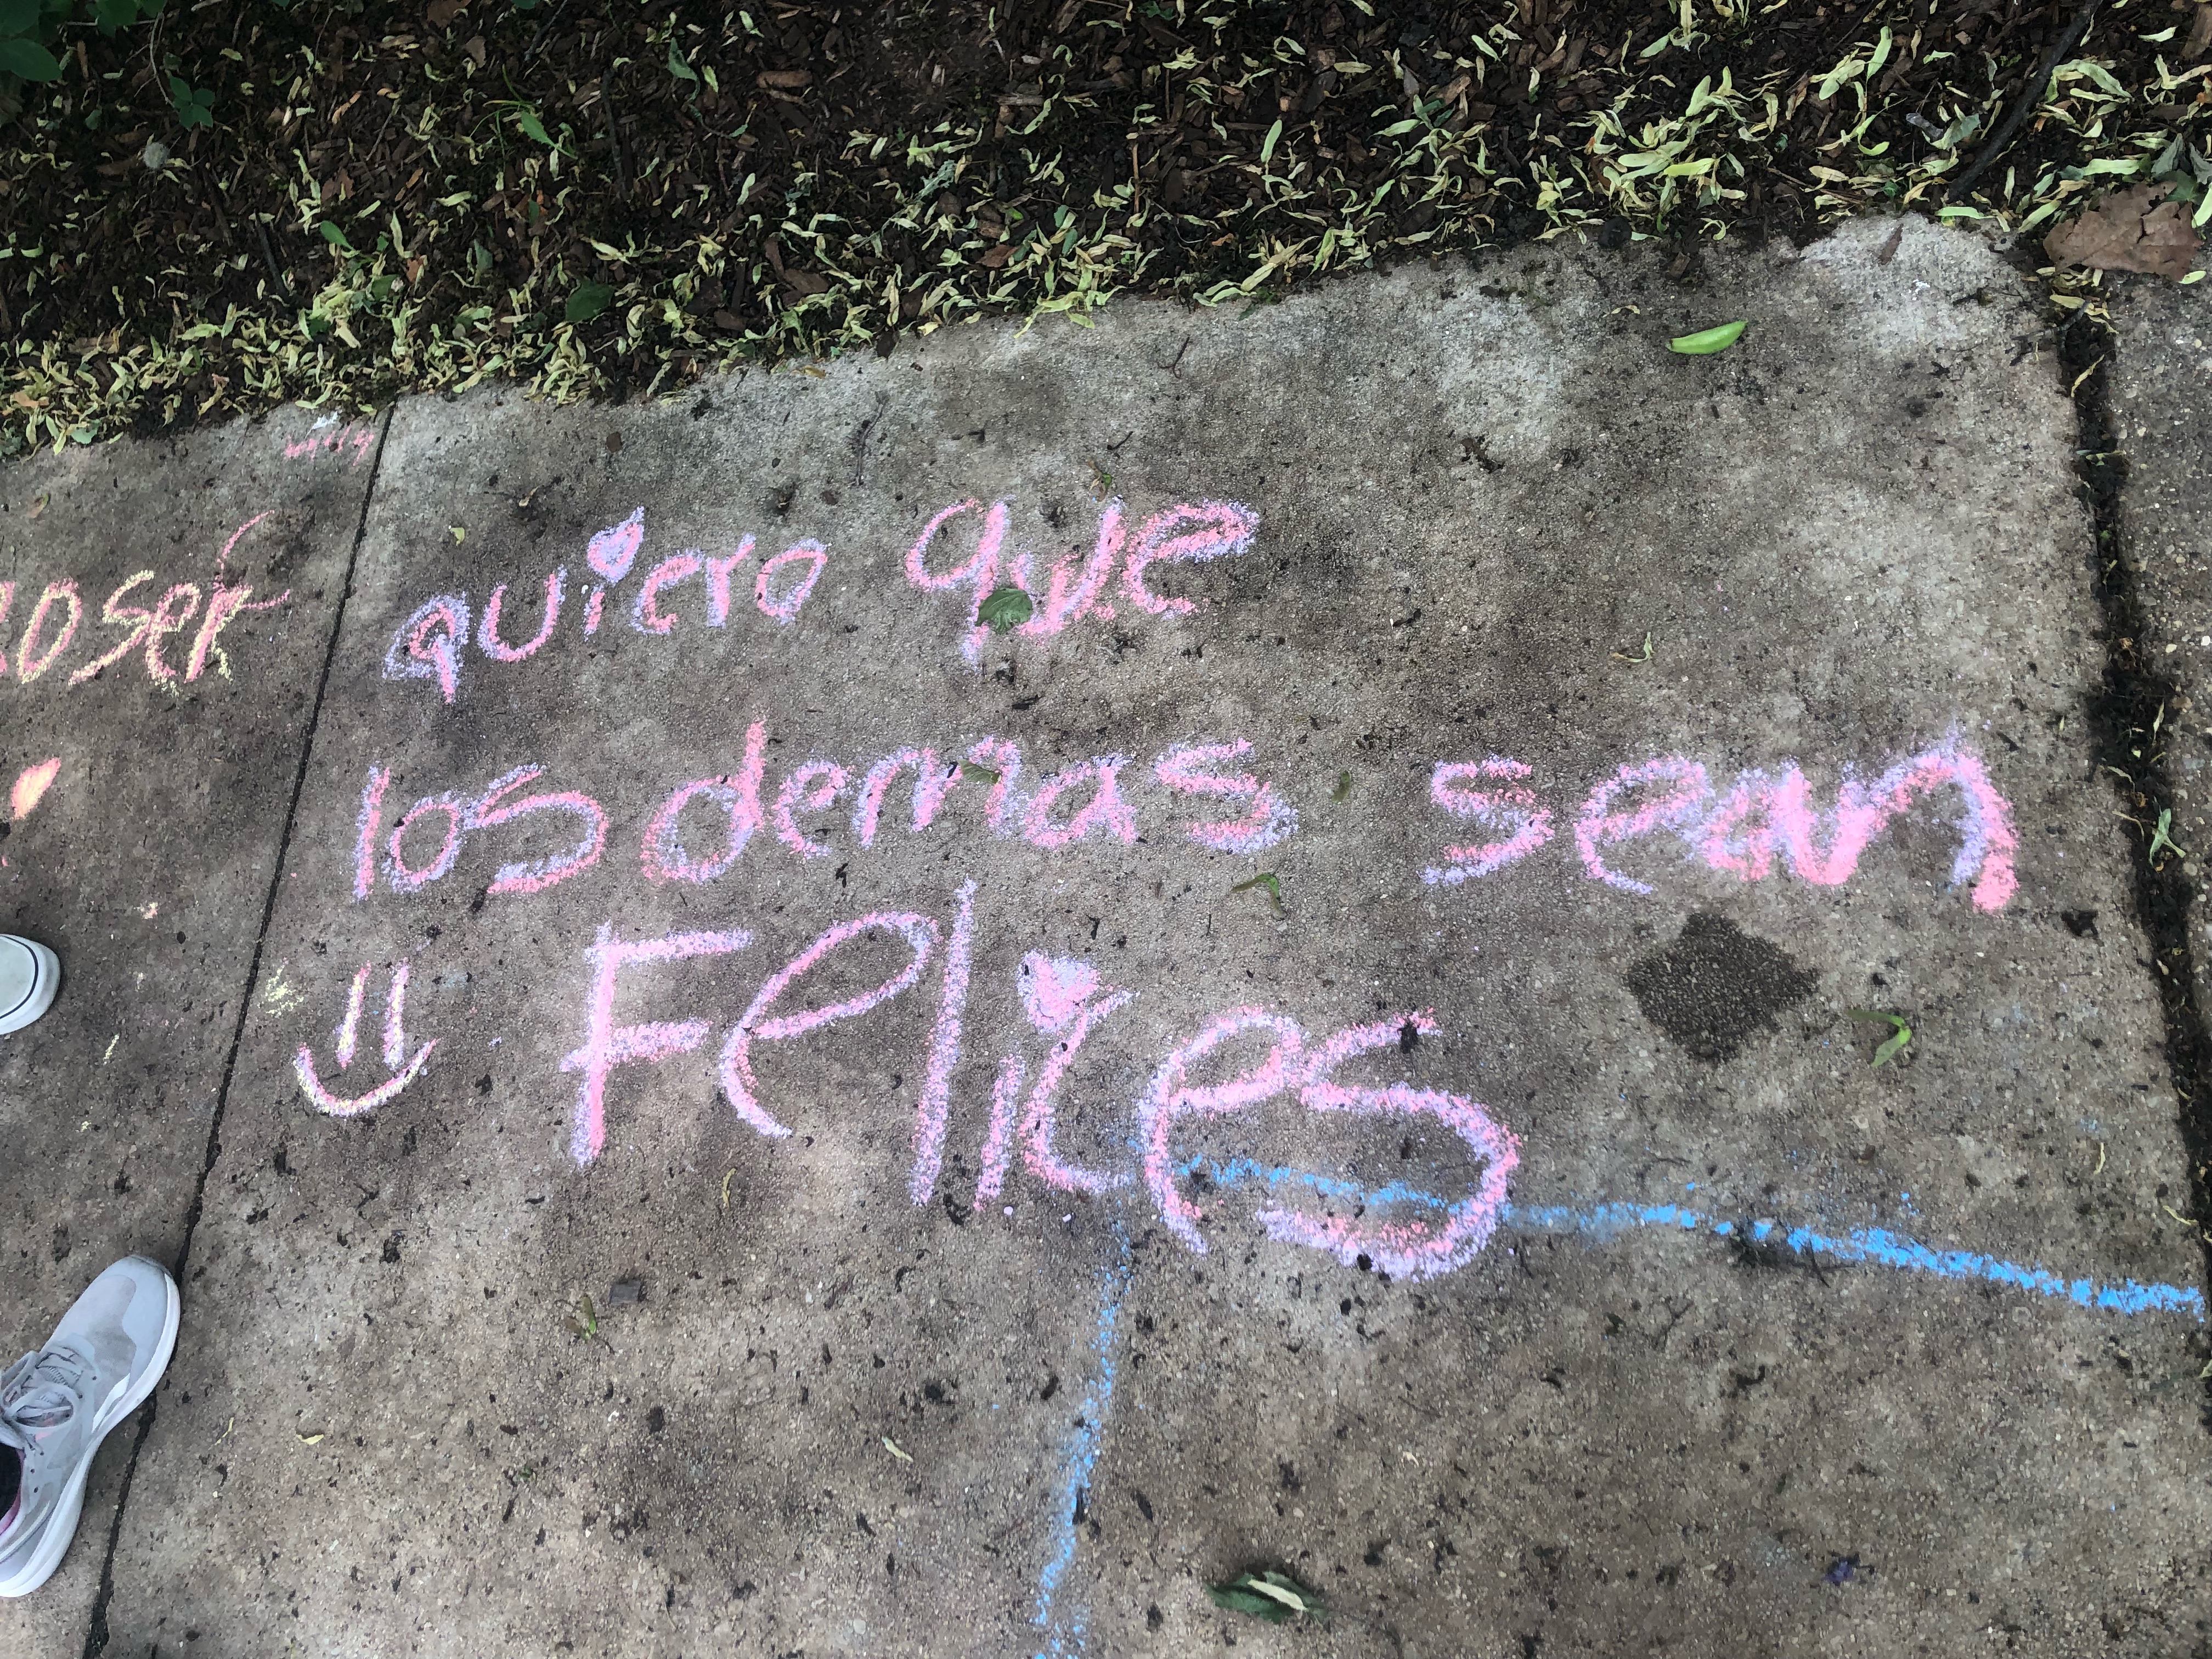 quiero que
los demas sean
Felices